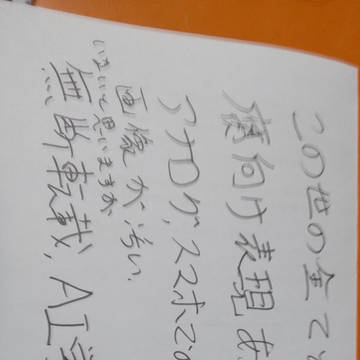 この世の全て
腐向け表現あ
アナログ、スマホ
画像が汚い、
いないと思いますが
無断転載、AI学